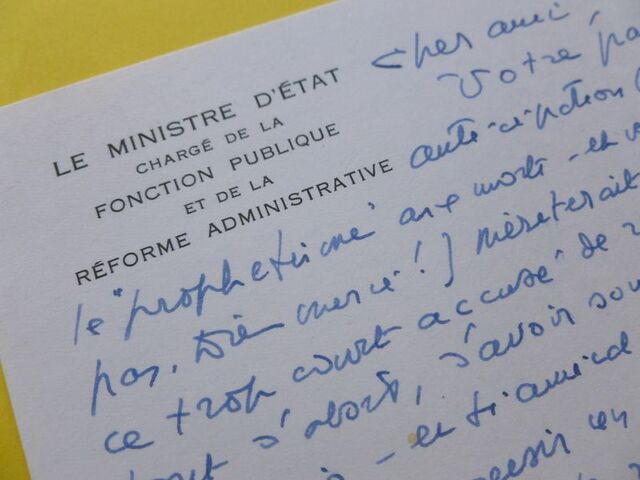 LE MINISTRE D'ÉTAT
CHARGÉ DE LA
FONCTION PUBLIQUE
ET DE LA
RÉFORME ADMINISTRATIVE
Cher ami,
Votre
anticipation
le "prophétisme" aux morts - en
pas, Dieu merci!) mériterait
ce trop court accusé de
tout d'abord, savoir
en
un